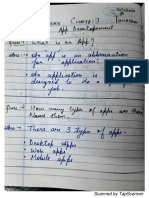 Chapter-7
App Development
Ques→ What is An App?
Ans → An 'app' is an abbreviation
for 'application'.
• An application is
designed to do a
job.
Ques→ How many types of apps are there
Name them.
Ans → There are 3 types of app
• Desktop Apps
• Web apps
• Mobile apps
Scanned by TapScanner